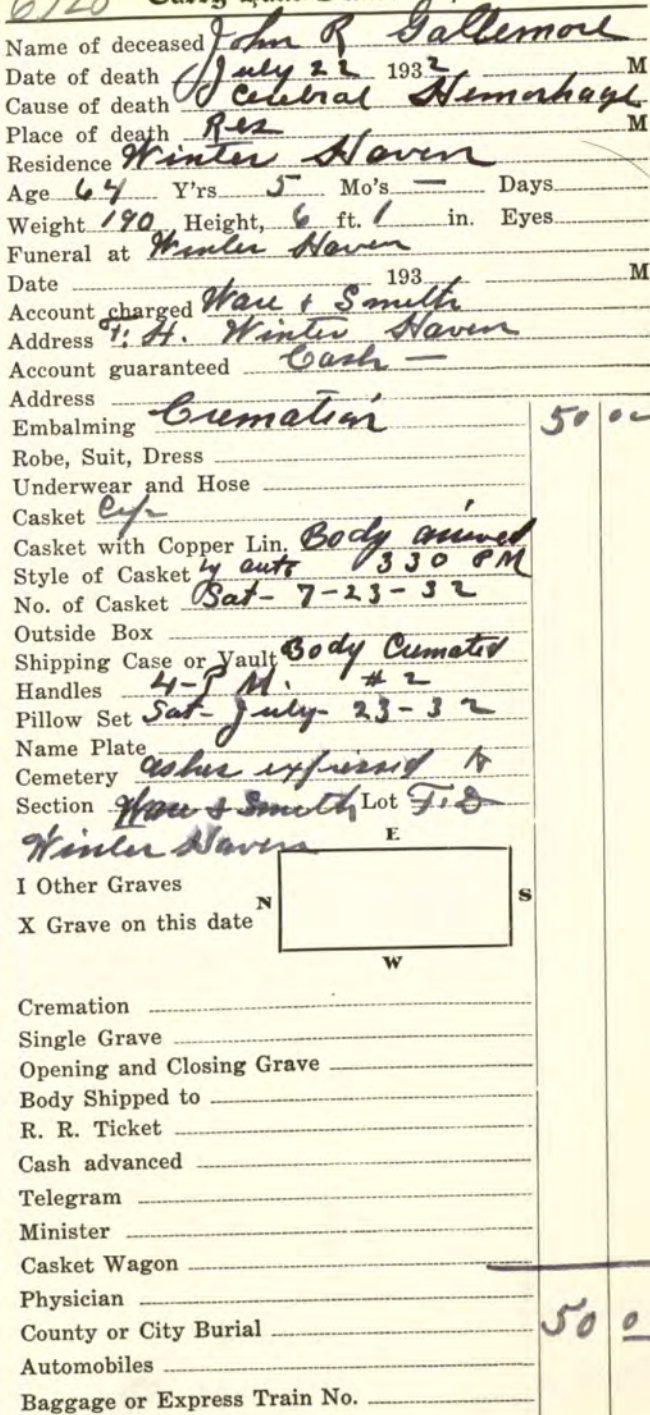 6120
Name of deceased John R Gallemore
Date of death July 22 1932 M
Cause of death Cerebral Hemorhage
Place of death Res M
Residence Winter Haven
Age 64 Y'rs 5 Mo's — Days
Weight 190 Height, 6 ft. 1 in. Eyes
Funeral at Winter Haven
Date 193 M
Account charged Ware & Smith
Address F. H. Winter Haven
Account guaranteed Cash —
Address
Embalming Cremation 50 00
Robe, Suit, Dress
Underwear and Hose
Casket
Casket with Copper Lin. Body arrived
Style of Casket by auto 3 30 PM
No. of Casket Sat- 7-23-32
Outside Box
Shipping Case or Vault Body Cremated
Handles 4-P M. #2
Pillow Set Sat- July- 23-32
Name Plate
Cemetery ashes expressed to
Section Ware & Smith Lot F.D
Winter Haven
E
I Other Graves
N S
X Grave on this date
W
Cremation
Single Grave
Opening and Closing Grave
Body Shipped to
R. R. Ticket
Cash advanced
Telegram
Minister
Casket Wagon
Physician
County or City Burial 50 0
Automobiles
Baggage or Express Train No.